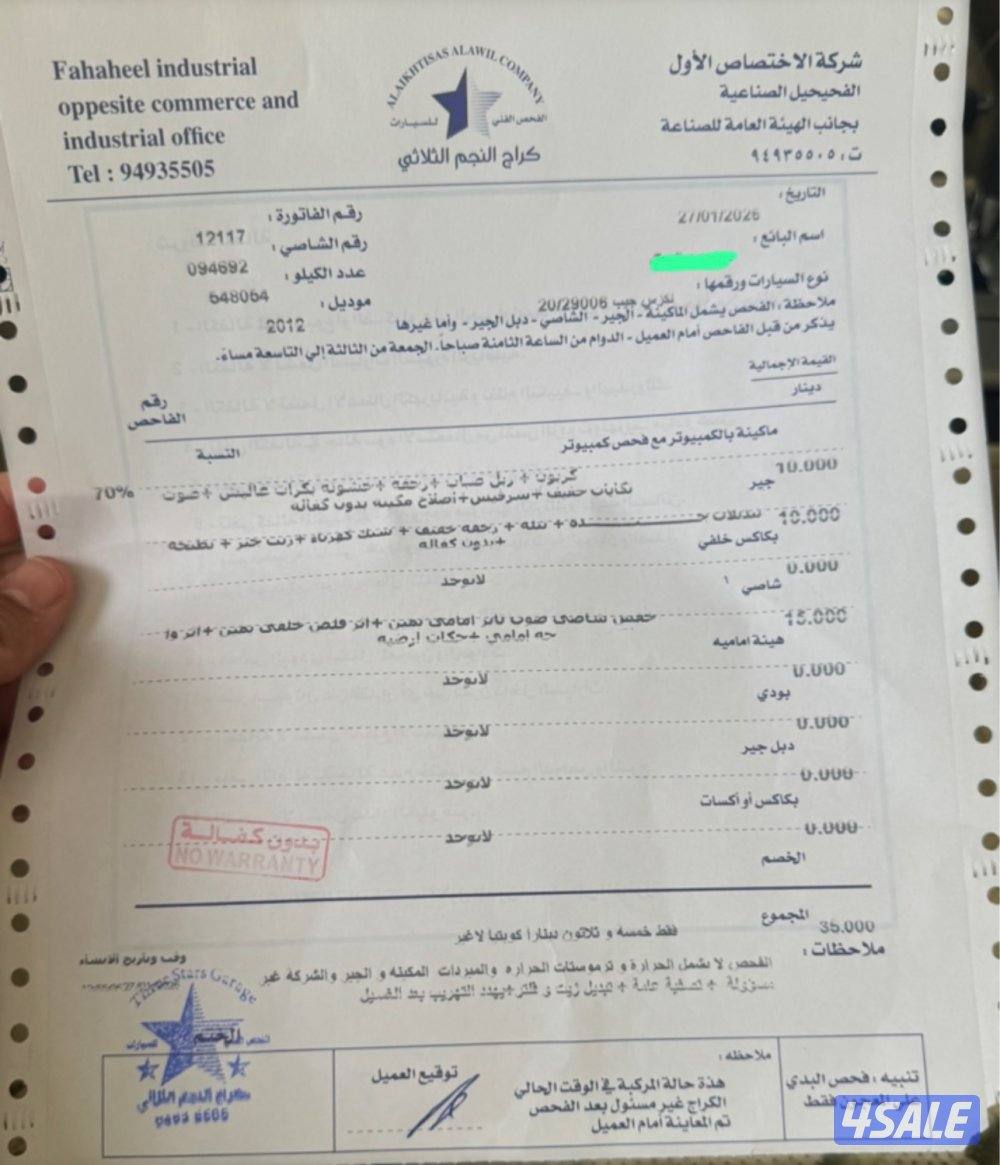 Fahaheel industrial
oppesite commerce and
industrial office
Tel : 94935505
ALAIKHTISAS ALAWIL COMPANY
الفحص الفني للسيارات
كراج النجم الثلاثي
شركة الاختصاص الأول
الفحيحيل الصناعية
بجانب الهيئة العامة للصناعة
ت: ٩٤٩٣٥٥٠٥
التاريخ:
27/01/2026
رقم الفاتورة:
12117
اسم البائع:
رقم الشاصي:
094692
نوع السيارات ورقمها:
لكزس جيب 20/29006
عدد الكيلو:
548054
موديل:
2012
ملاحظة: الفحص يشمل الماكينة - الجير - الشاصي - دبل الجير - وأما غيرها
يذكر من قبل الفاحص أمام العميل - الدوام من الساعة الثامنة صباحاً. الجمعة من الثالثة إلي التاسعة مساءً.
القيمة الإجمالية
دينار
رقم الفاحص
النسبة
ماكينة بالكمبيوتر مع فحص كمبيوتر
10.000
كربون + ربل صباب + رجفه + خشونه بكرات عالبنش + صوت
70%
تكايات خفيف + سرفيس + اصلاح مكينه بدون كفاله
جير
10.000
تبديلات جـــــــده + نتله + رجفه خفيف + شتك كهرباء + زيت
+ بدون كفاله
بكاكس خلفي
0.000
لايوجد
شاصي
15.000
خفس شاصي صوب تاير امامي يمين + اثر قلص خلفي يمين +
امامي + حكات ارضيه
هيئة اماميه
0.000
لايوجد
بودي
0.000
لايوجد
دبل جير
0.000
لايوجد
بكاكس أو أكسات
0.000
لايوجد
الخصم
بدون كفالة
NO WARRANTY
المجموع
35.000
فقط خمسة و ثلاثون ديناراً كويتيا لاغير
ملاحظات:
الفحص لا يشمل الحرارة و ترموستات الحراره والمبردات المكينه و الجير والشركة غير
مسؤولة + تصفية عامة + تبديل زيت و فلتر + يهدد التهريب بعد الغسيل
وقت وتاريخ الانشاء
Three Stars Garage
الختم
كراج النجم الثلاثي
توقيع العميل
ملاحظه:
هذة حالة المركبة في الوقت الحالي
الكراج غير مسئول بعد الفحص
تم المعاينة أمام العميل
تنبيه: فحص البدي
فقط
4SALE